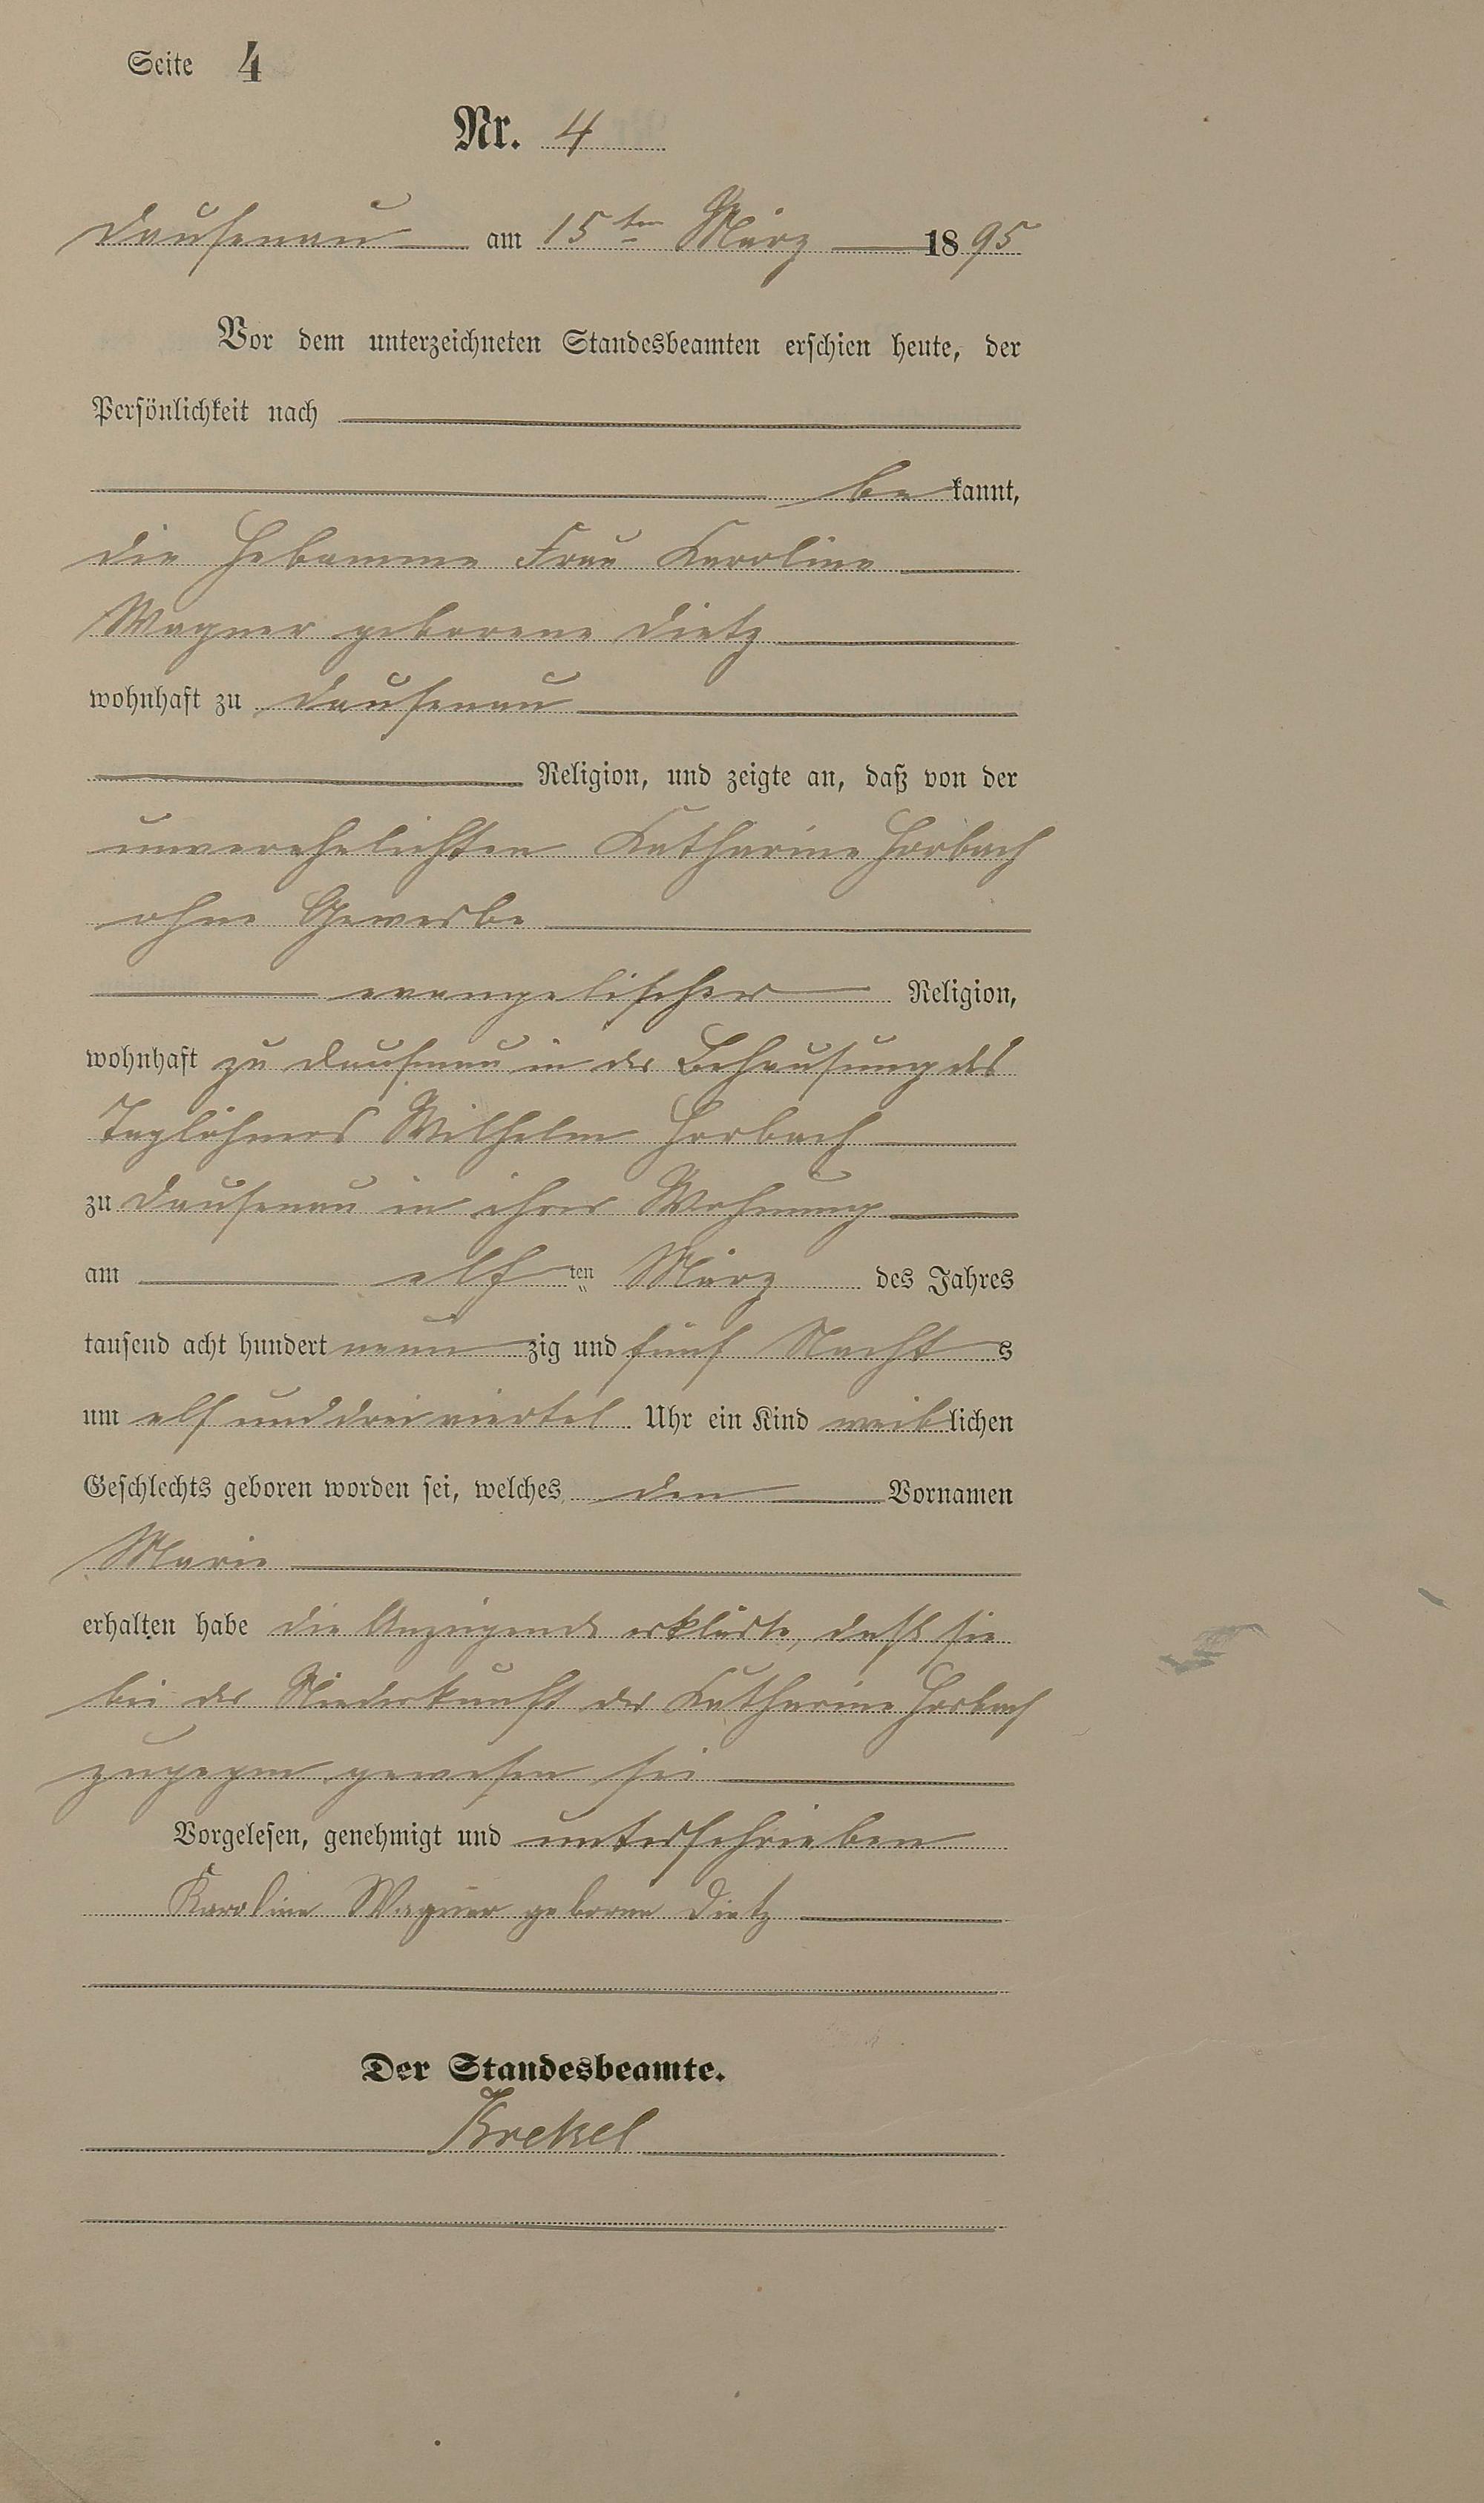 Seite 4
Nr. 4
Dausenau am 15ten März 1895
Vor dem unterzeichneten Standesbeamten erschien heute, der
Persönlichkeit nach
bekannt,
die Hebamme Frau Karoline
Wagner geborene Dietz
wohnhaft zu Dausenau
Religion, und zeigte an, daß von der
unverehelichten Katharine Horbach
ohne Gewerbe
evangelischer Religion,
wohnhaft zu Dausenau in der Behausung des
Taglöhners Wilhelm Horbach
zu Dausenau in ihrer Wohnung
am elften März des Jahres
tausend acht hundert neunzig und fünf Nachts
um elf und drei viertel Uhr ein Kind weiblichen
Geschlechts geboren worden sei, welches den Vornamen
Marie
erhalten habe die Anzeigende erklärte, daß sie
bei der Niederkunft der Katharine Horbach
zugegen gewesen sei
Vorgelesen, genehmigt und unterschrieben
Karoline Wagner geborne Dietz
Der Standesbeamte.
Krekel